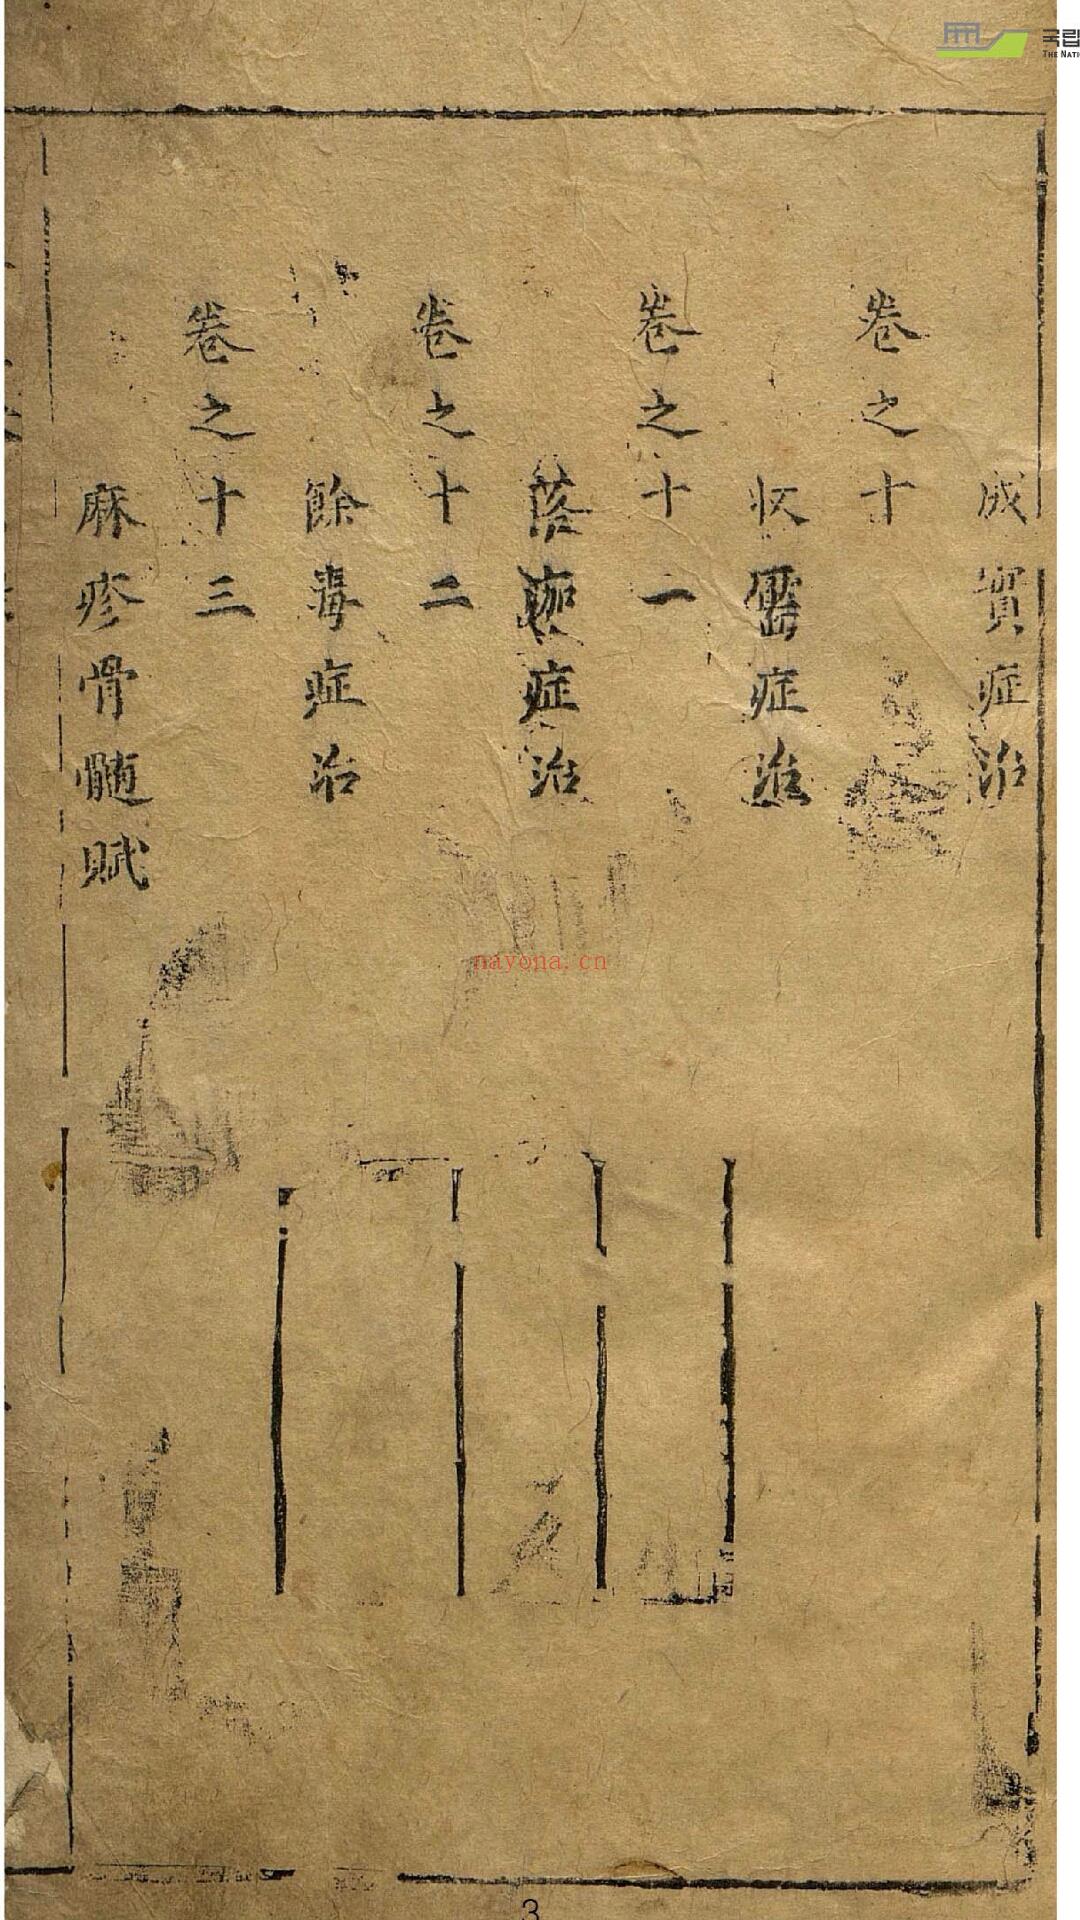 成實症治
卷之十
收靨症治
卷之十一
落痂症治
卷之十二
餘毒症治
卷之十三
麻疹骨髓賦
nayona.cn
국립
THE NATI
3